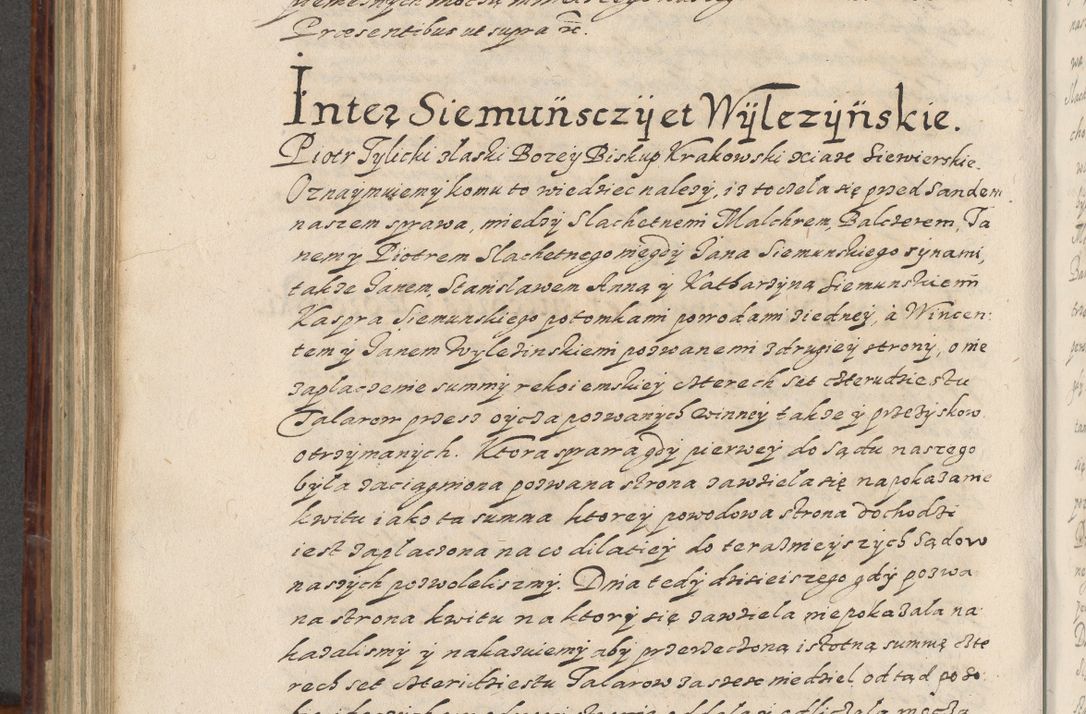 Præsentibus ut supra etc.
Inter Siemuńsczÿ et Wÿlczÿńskie.
Piotr Tylicki zlaski Bozey Biskup Krakowski xiaze Siewierskie.
Oznaymuiemy komu to wiedziec nalezy, iz toczela się przed Sandem
naszem sprawa, miedzy Slachetnemi Malchrem, Balczerem, Ja
nem y Piotrem Slachetnego niegdy Jana Siemunskiego synami,
takze Janem, Stanislawem Anną y Katharzyną Siemunskiemi
Kaspra Siemunskiego potomkami powodami ziedney, à Wincen:
tem y Janem Wylezinskiemi pozwanemi zdrugiey strony, o nie
zaplaczenie summy rekoiemskiey czterech set czterudziestu
Talarow przesz oycza pozwanych winney takze y przezyskow
otrzymanych. Ktora sprawa gdy pierwey do sądu naszego
była zaciągniona pozwana strona zawziela się napokazanie
kwitu iako ta summa ktorey powodowa strona dochodzi
iest zaplaczona na co dilatiey do teraznieyszych Sądow
naszych pozwolelismy. Dnia tedy dzisieiszego gdy pozwa
na strona kwitu na ktory się zawziela niepokazala na
kazalismy y nakazuiemy aby przerzeczoną istotną summę czte
rech set czteridziestu Talarow za szesc niedziel od tąd po so